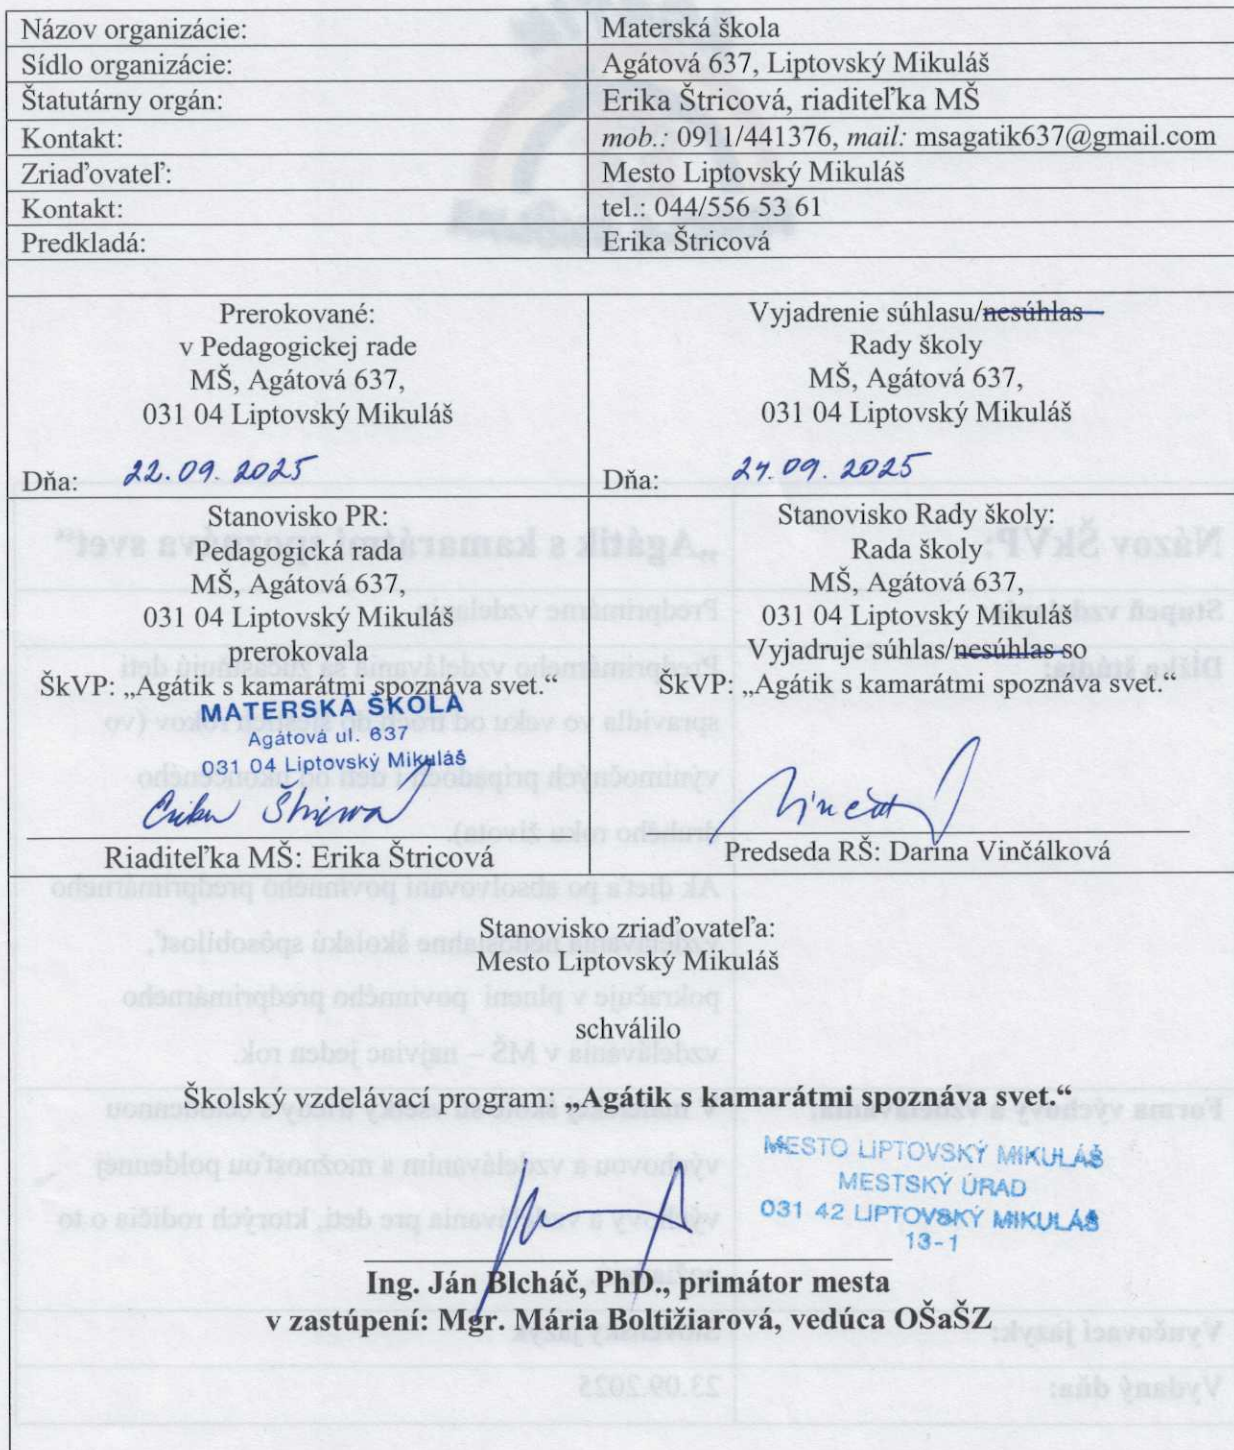 Názov organizácie: Materská škola
Sídlo organizácie: Agátová 637, Liptovský Mikuláš
Štatutárny orgán: Erika Štricová, riaditeľka MŠ
Kontakt: mob.: 0911/441376, mail: msagatik637@gmail.com
Zriaďovateľ: Mesto Liptovský Mikuláš
Kontakt: tel.: 044/556 53 61
Predkladá: Erika Štricová
Prerokované:
v Pedagogickej rade
MŠ, Agátová 637,
031 04 Liptovský Mikuláš
Dňa: 22.09.2025
Vyjadrenie súhlasu/nesúhlas
Rady školy
MŠ, Agátová 637,
031 04 Liptovský Mikuláš
Dňa: 24.09.2025
Stanovisko PR:
Pedagogická rada
MŠ, Agátová 637,
031 04 Liptovský Mikuláš
prerokovala
ŠkVP: „Agátik s kamarátmi spoznáva svet.“
MATERSKÁ ŠKOLA
Agátová ul. 637
031 04 Liptovský Mikuláš
Erika Štricová
Riaditeľka MŠ: Erika Štricová
Stanovisko Rady školy:
Rada školy
MŠ, Agátová 637,
031 04 Liptovský Mikuláš
Vyjadruje súhlas/nesúhlas so
ŠkVP: „Agátik s kamarátmi spoznáva svet.“
Predseda RŠ: Darina Vinčálková
Stanovisko zriaďovateľa:
Mesto Liptovský Mikuláš
schválilo
Školský vzdelávací program: „Agátik s kamarátmi spoznáva svet.“
MESTO LIPTOVSKÝ MIKULÁŠ
MESTSKÝ ÚRAD
031 42 LIPTOVSKÝ MIKULÁŠ
13-1
Ing. Ján Blcháč, PhD., primátor mesta
v zastúpení: Mgr. Mária Boltižiarová, vedúca OŠaŠZ